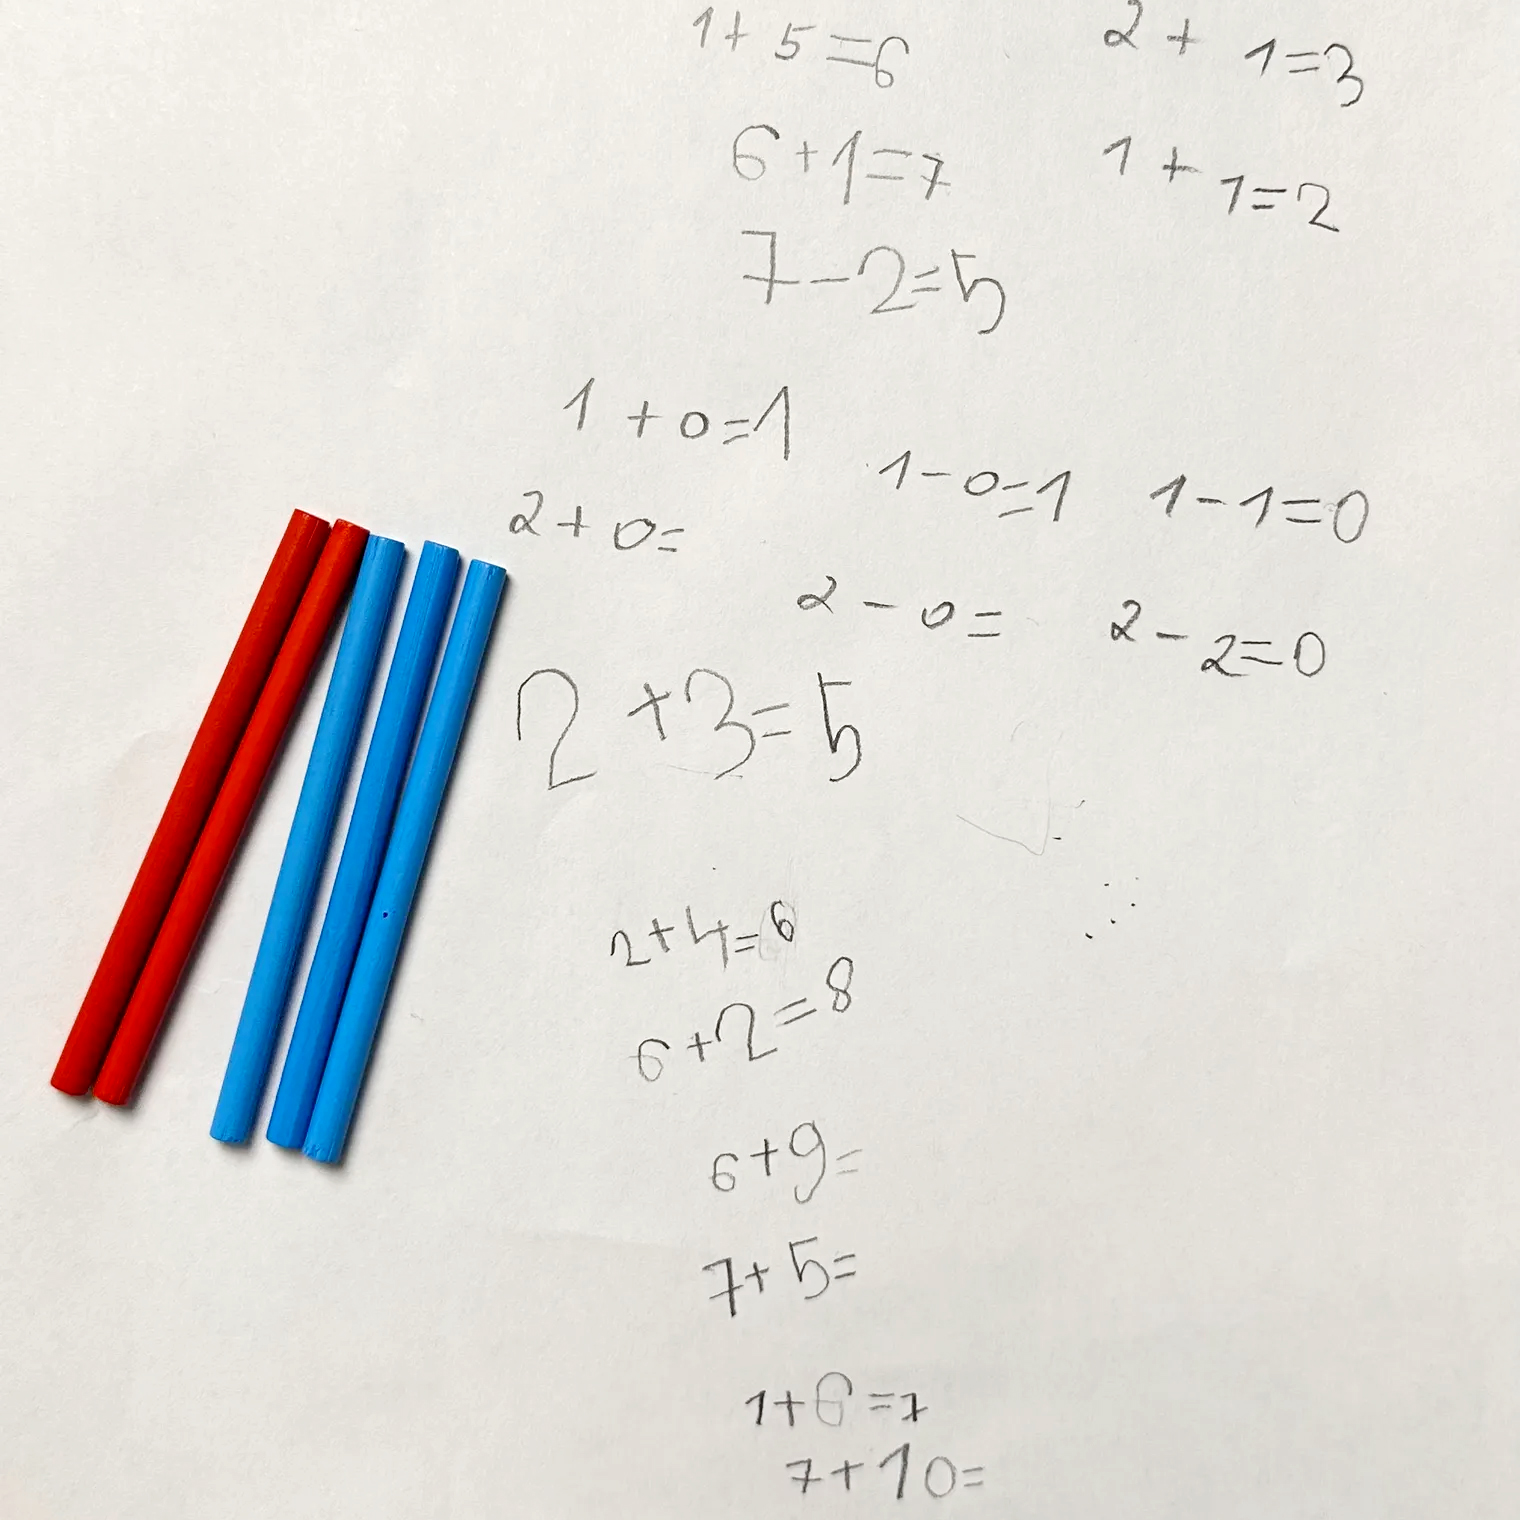 1 + 5 = 6
2 + 1 = 3
6 + 1 = 7
1 + 1 = 2
7 - 2 = 5
1 + 0 = 1
1 - 0 = 1
1 - 1 = 0
2 + 0 =
2 - 0 =
2 - 2 = 0
2 + 3 = 5
2 + 4 = 6
6 + 2 = 8
6 + 9 =
7 + 5 =
1 + 6 = 7
7 + 10 =